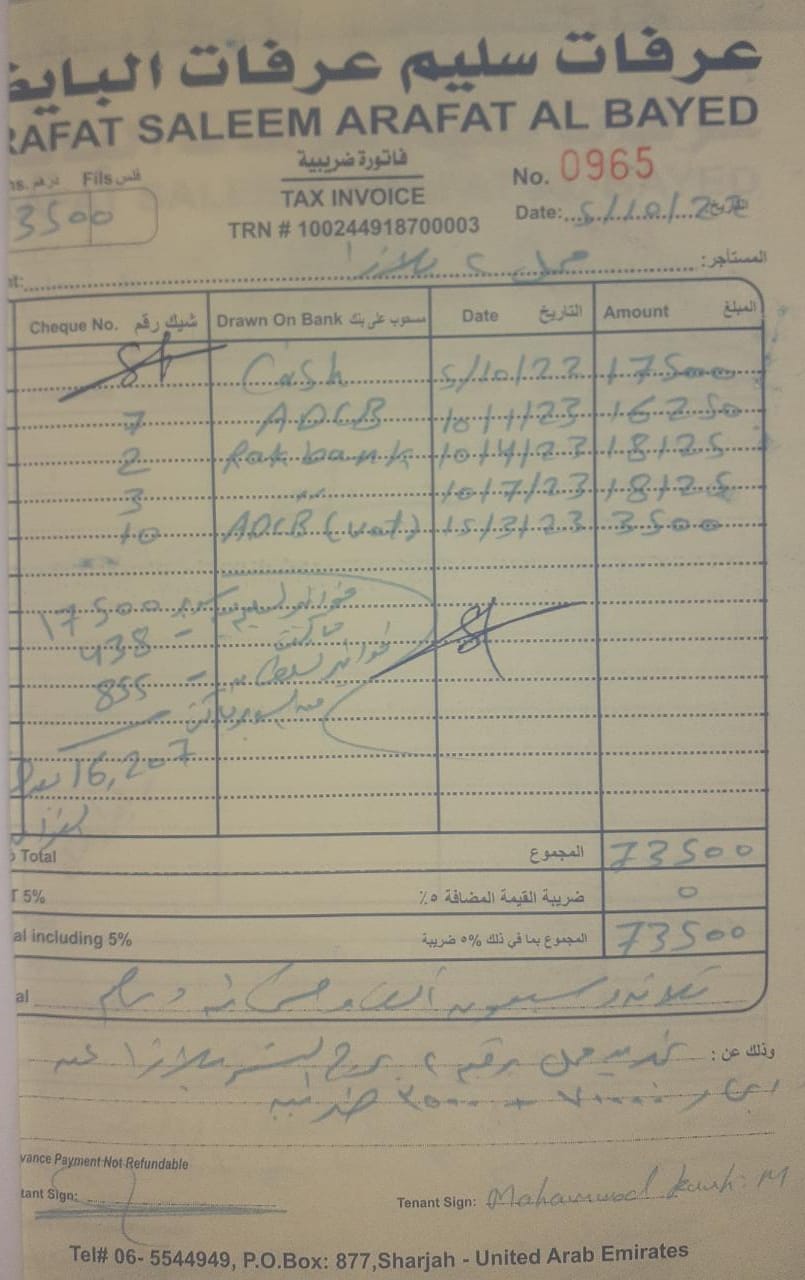 عرفات سليم عرفات البايض
RAFAT SALEEM ARAFAT AL BAYED
فاتورة ضريبية
TAX INVOICE
TRN # 100244918700003
No. 0965
Date: 5/10/22 التاريخ
hs. درهم Fils فلس
3500
المستأجر: محل 2 بلازا
Cheque No. شيك رقم Drawn On Bank مسحوب على بنك Date التاريخ Amount المبلغ
Cash 5/10/22 17500
7 ADCB 10/1/23 16250
2 Rak bank 10/4/23 18125
3 " 10/7/23 18125
10 ADCB (vat) 15/3/23 3500
17500
438 -
855 -
16,207
Total المجموع 73500
T 5% ضريبة القيمة المضافة ٥٪ 0
al including 5% المجموع بما في ذلك ٥% ضريبة 73500
al ثلاثة وسبعون ألف وخمسمائة درهم
وذلك عن: محل رقم ٢ برج بلازا
ايجار ٧٠٠٠٠ + ٣٥٠٠ ضريبة
vance Payment Not Refundable
tant Sign:
Tenant Sign: Mahamwood
Tel# 06- 5544949, P.O.Box: 877,Sharjah - United Arab Emirates